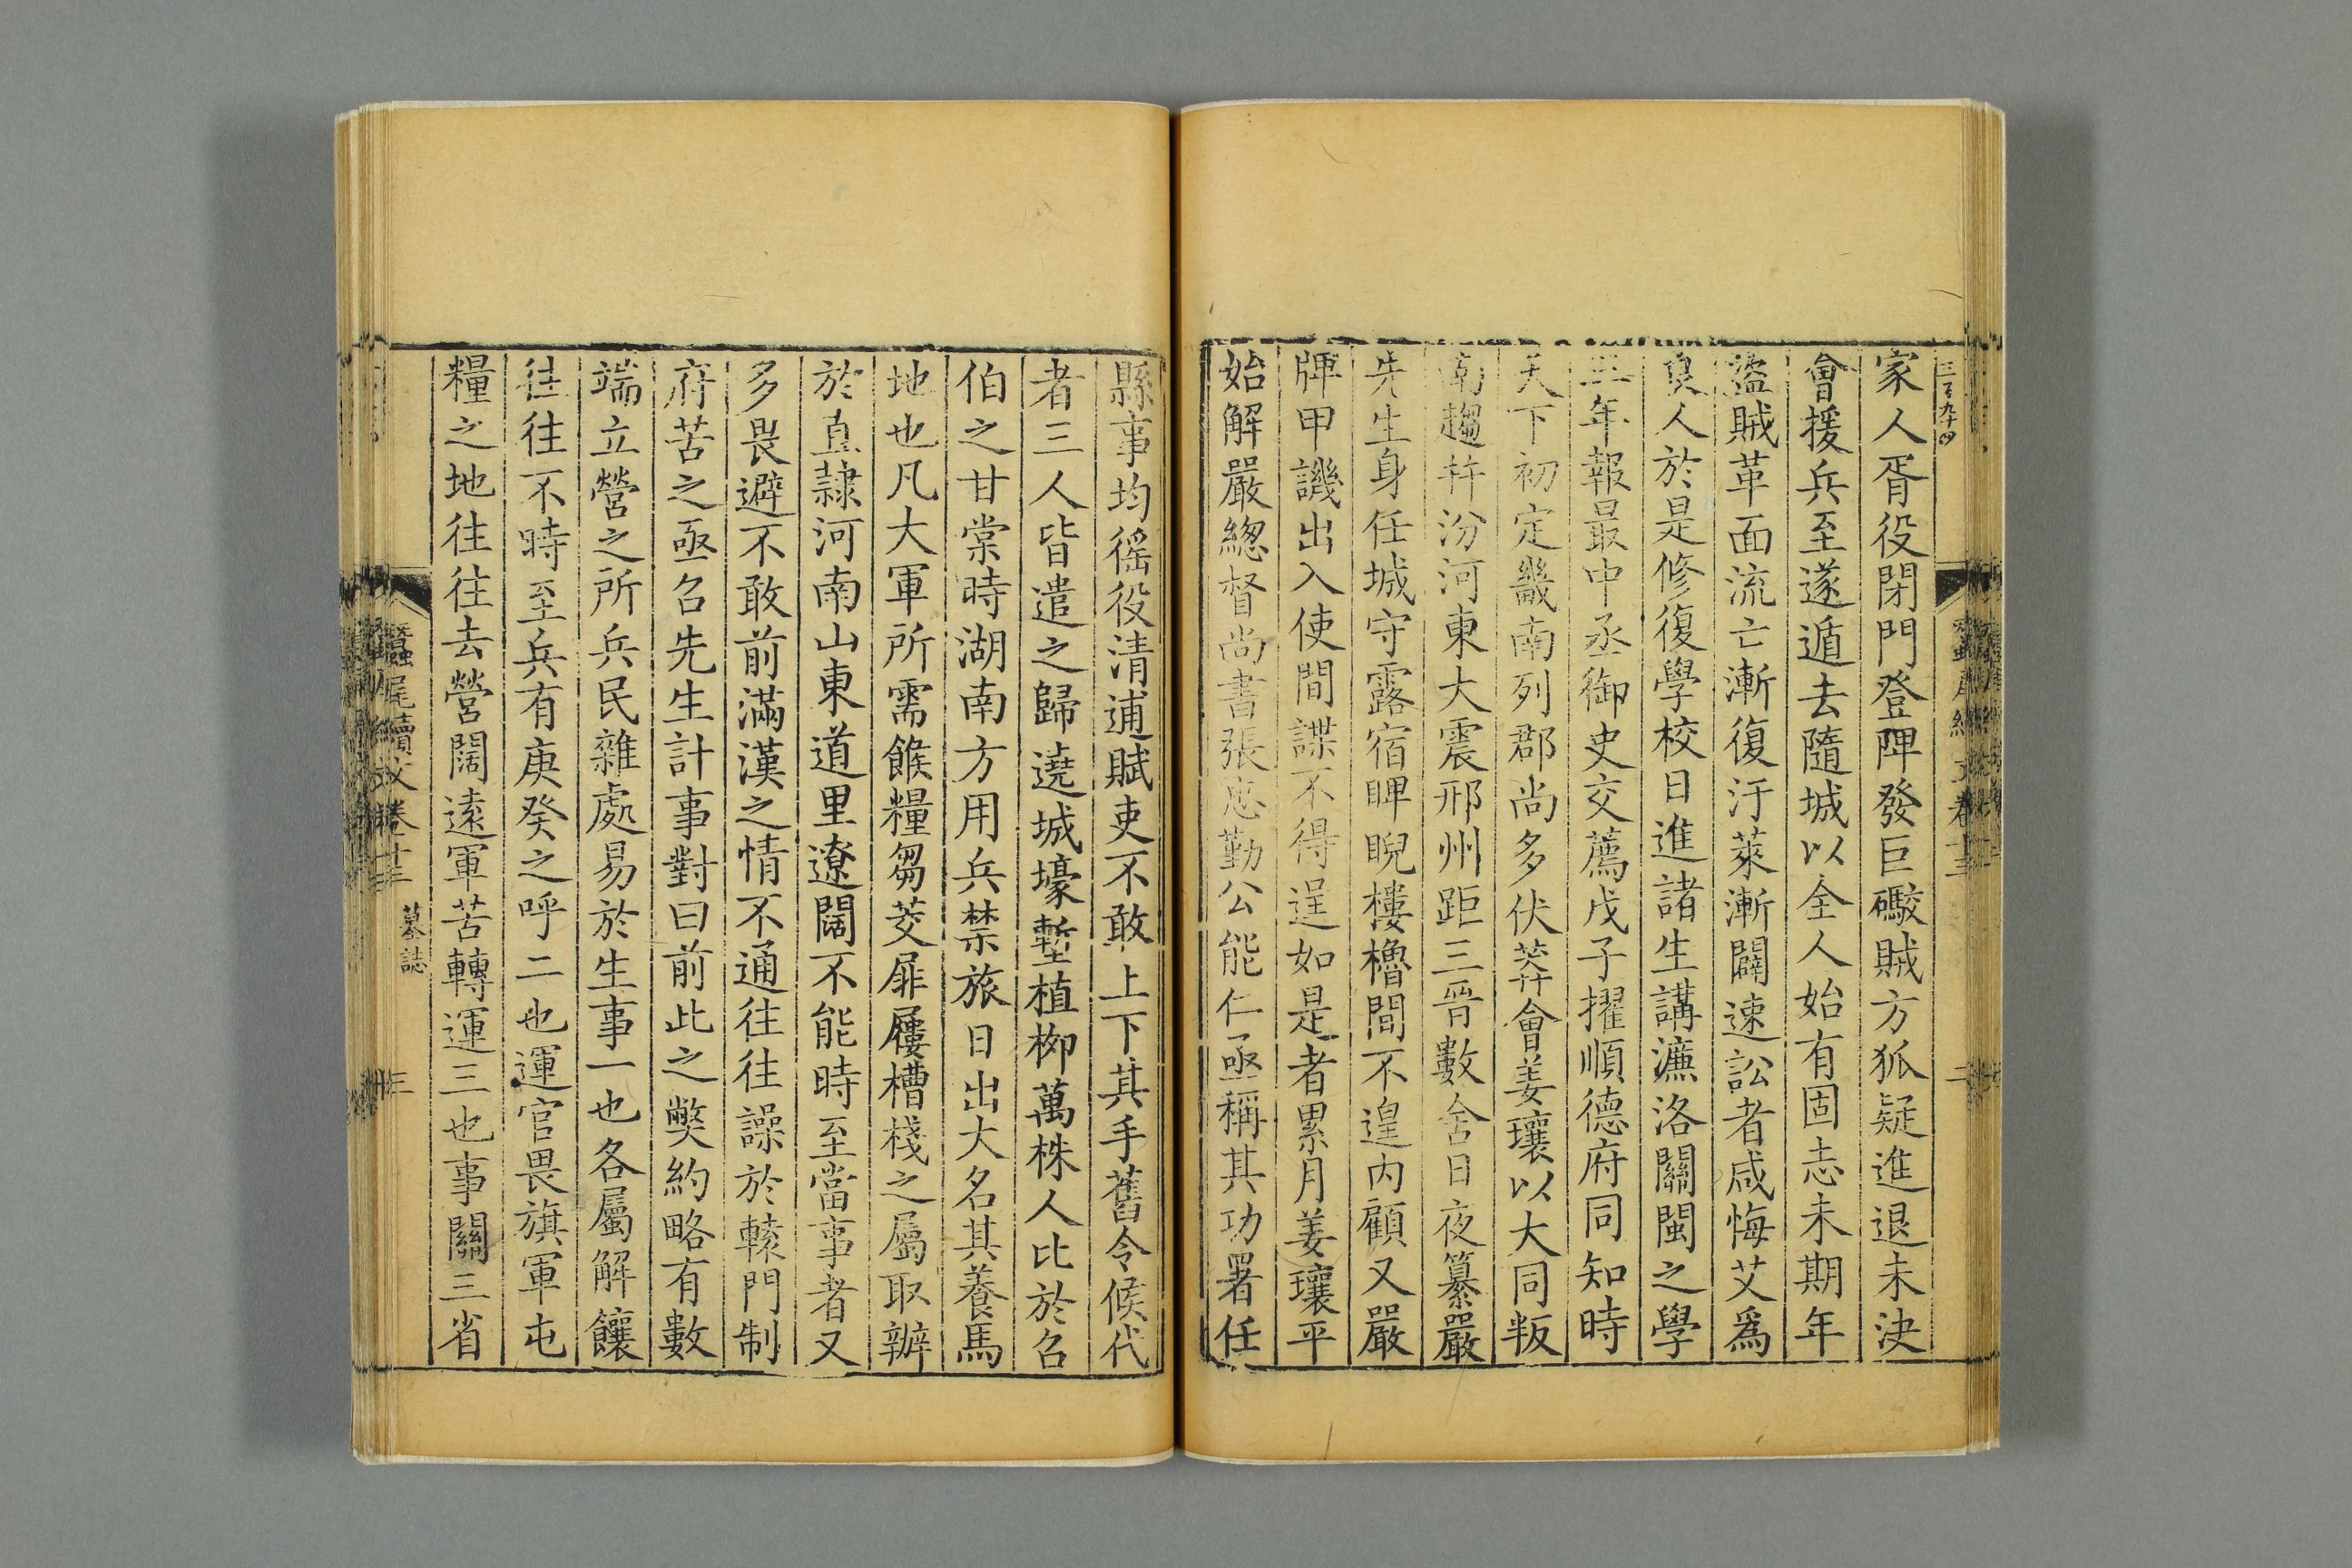 三百九十四
家人胥役閉門登陴發巨礮賊方狐疑進退未決
會援兵至遂遁去隨城以全人始有固志未期年
盜賊革面流亡漸復汙萊漸闢速訟者咸悔艾爲
良人於是修復學校日進諸生講濂洛關閩之學
三年報最中丞御史交薦戊子擢順德府同知時
天下初定畿南列郡尚多伏莽會姜瓖以大同叛
南趨幷汾河東大震邢州距三晉數舍日夜纂嚴
先生身任城守露宿睥睨樓櫓間不遑內顧又嚴
牌甲譏出入使間諜不得逞如是者累月姜瓖平
始解嚴總督尚書張忠勤公能仁亟稱其功署任
縣事均徭役清逋賦吏不敢上下其手舊令候代
者三人皆遣之歸遶城壕塹植柳萬株人比於召
伯之甘棠時湖南方用兵禁旅日出大名其養馬
地也凡大軍所需餱糧芻茭屝屨槽棧之屬取辦
於直隸河南山東道里遼闊不能時至當事者又
多畏避不敢前滿漢之情不通往往譟於轅門制
府苦之亟召先生計事對曰前此之獘約略有數
端立營之所兵民雜處易於生事一也各屬解饟
往往不時至兵有庚癸之呼二也運官畏旗軍屯
糧之地往往去營闊遠軍苦轉運三也事關三省
蠶尾續文卷十三 墓誌 三